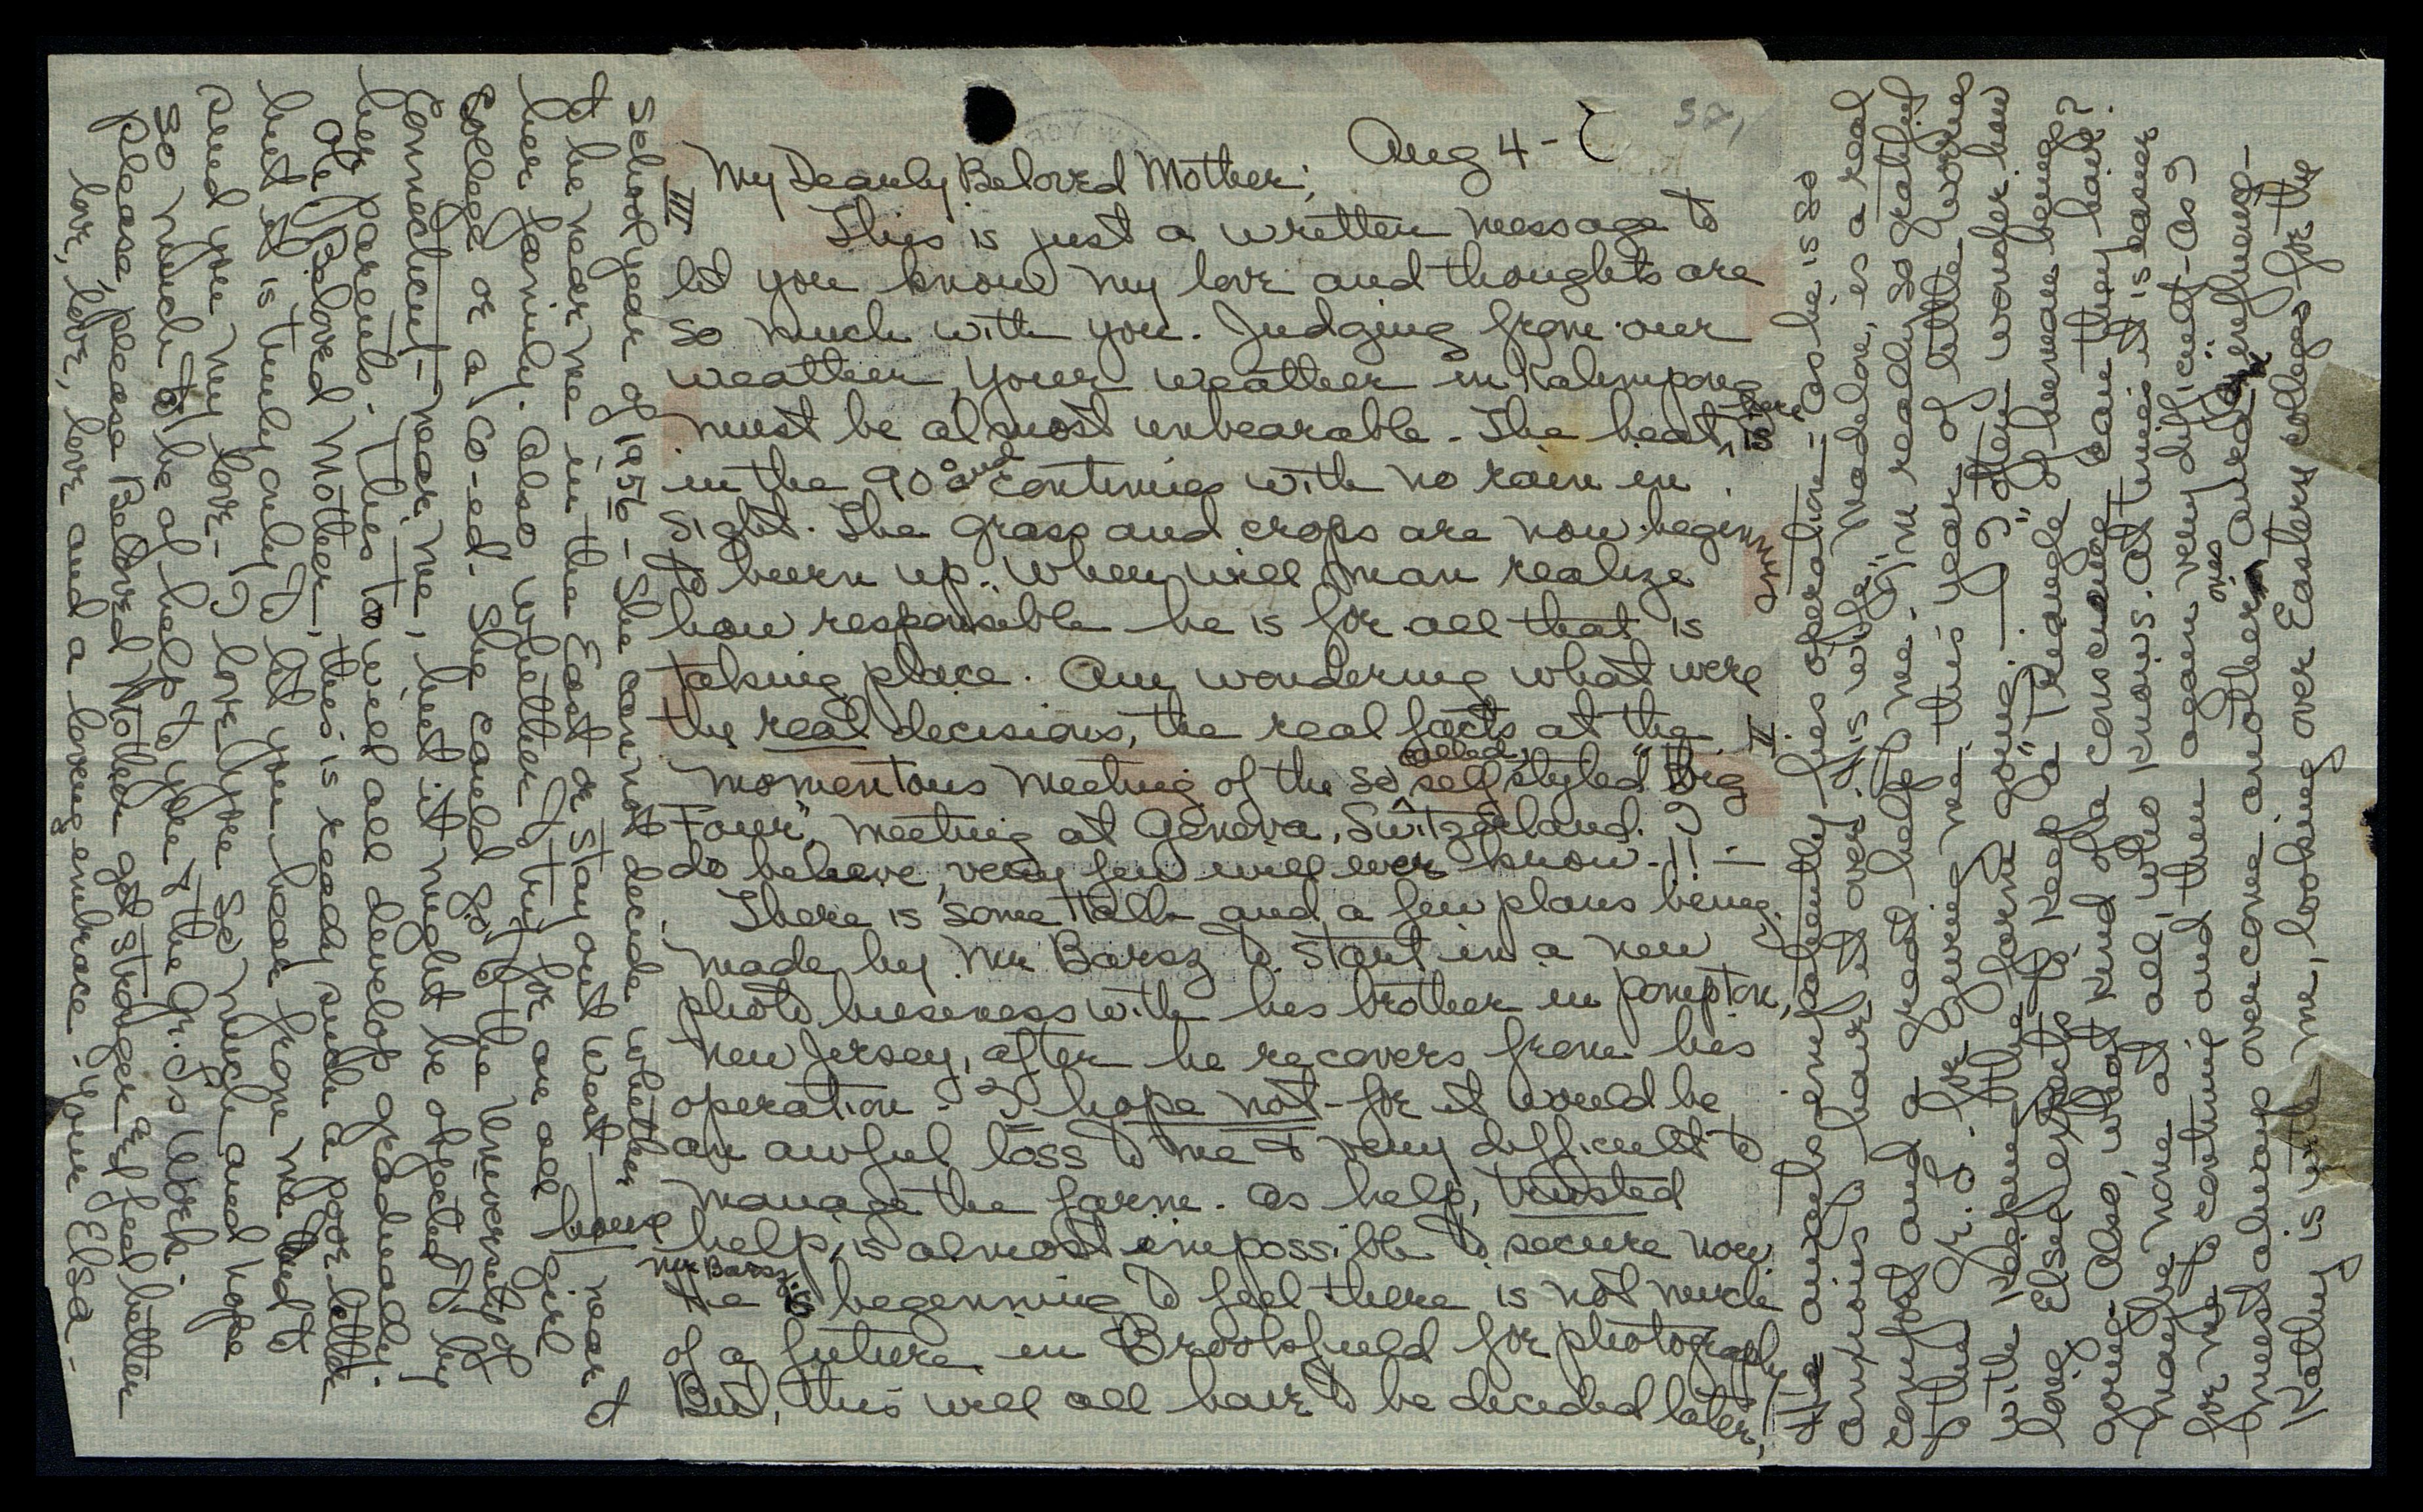 Aug 4 -
My Dearly Beloved Mother;
This is just a written message to
let you know my love and thoughts are
so much with you. Judging from our
weather, your weather in Kalimpong
must be almost unbearable. The heat here is
in the 90's and continues with no rain in
sight. The grass and crops are now beginning
to burn up. When will man realize
how responsible he is for all that is
taking place. Am wondering what were
the real decisions, the real facts at the
momentous meeting of the so called, self styled "Big
Four", meeting at Geneva, Switzerland. I
do believe, very few will ever know-!! -
There is some talk and a few plans being
made by Mr Barsz to start in a new
photo business with his brother in Pompton,
New Jersey, after he recovers from his
operation - I hope not - for it would be
an awful loss to me & very difficult to
manage the farm. As help, trusted
help, is almost impossible to secure now.
Mr Barsz is beginning to feel there is not much
of a future in Brookfield for photography
But, this will all have to be decided later,
II
He awaits impatiently his operation - as he is so
anxious to have it over. His wife, Madelon, is a real
comfort and a great help to me. I'm really so grateful
to the Gr. Ls. for giving me, this year, of little worries
with keeping the farm going. - I often wonder how
long Elsie expects to keep a "Triangle" of human beings
going. Also, what kind of a conscience can they have?
Maybe none at all, who knows. At times it is easier
for me to continue and then again very difficult - as I
must always overcome another ones aura and influence -
Kathy is with me, looking over Eastern colleges for the
III
school year of 1956 - She can not decide whether
to be near me in the East or stay out West near to
her family. Also whether to try for an all girl
College or a Co-ed. She could go to the University of
Connecticut - near me, but it might be objected to by
her parents. This too will all develop gradually.
Oh, Beloved Mother, this is really such a poor letter
but it is truly only to let you hear from me and to
send you my love - I love you so much and hope
so much to be of help to you & the Gr. Ls Work.
Please, please Beloved Mother get stronger and feel better
love, love, love and a loving embrace - Your Elsa -